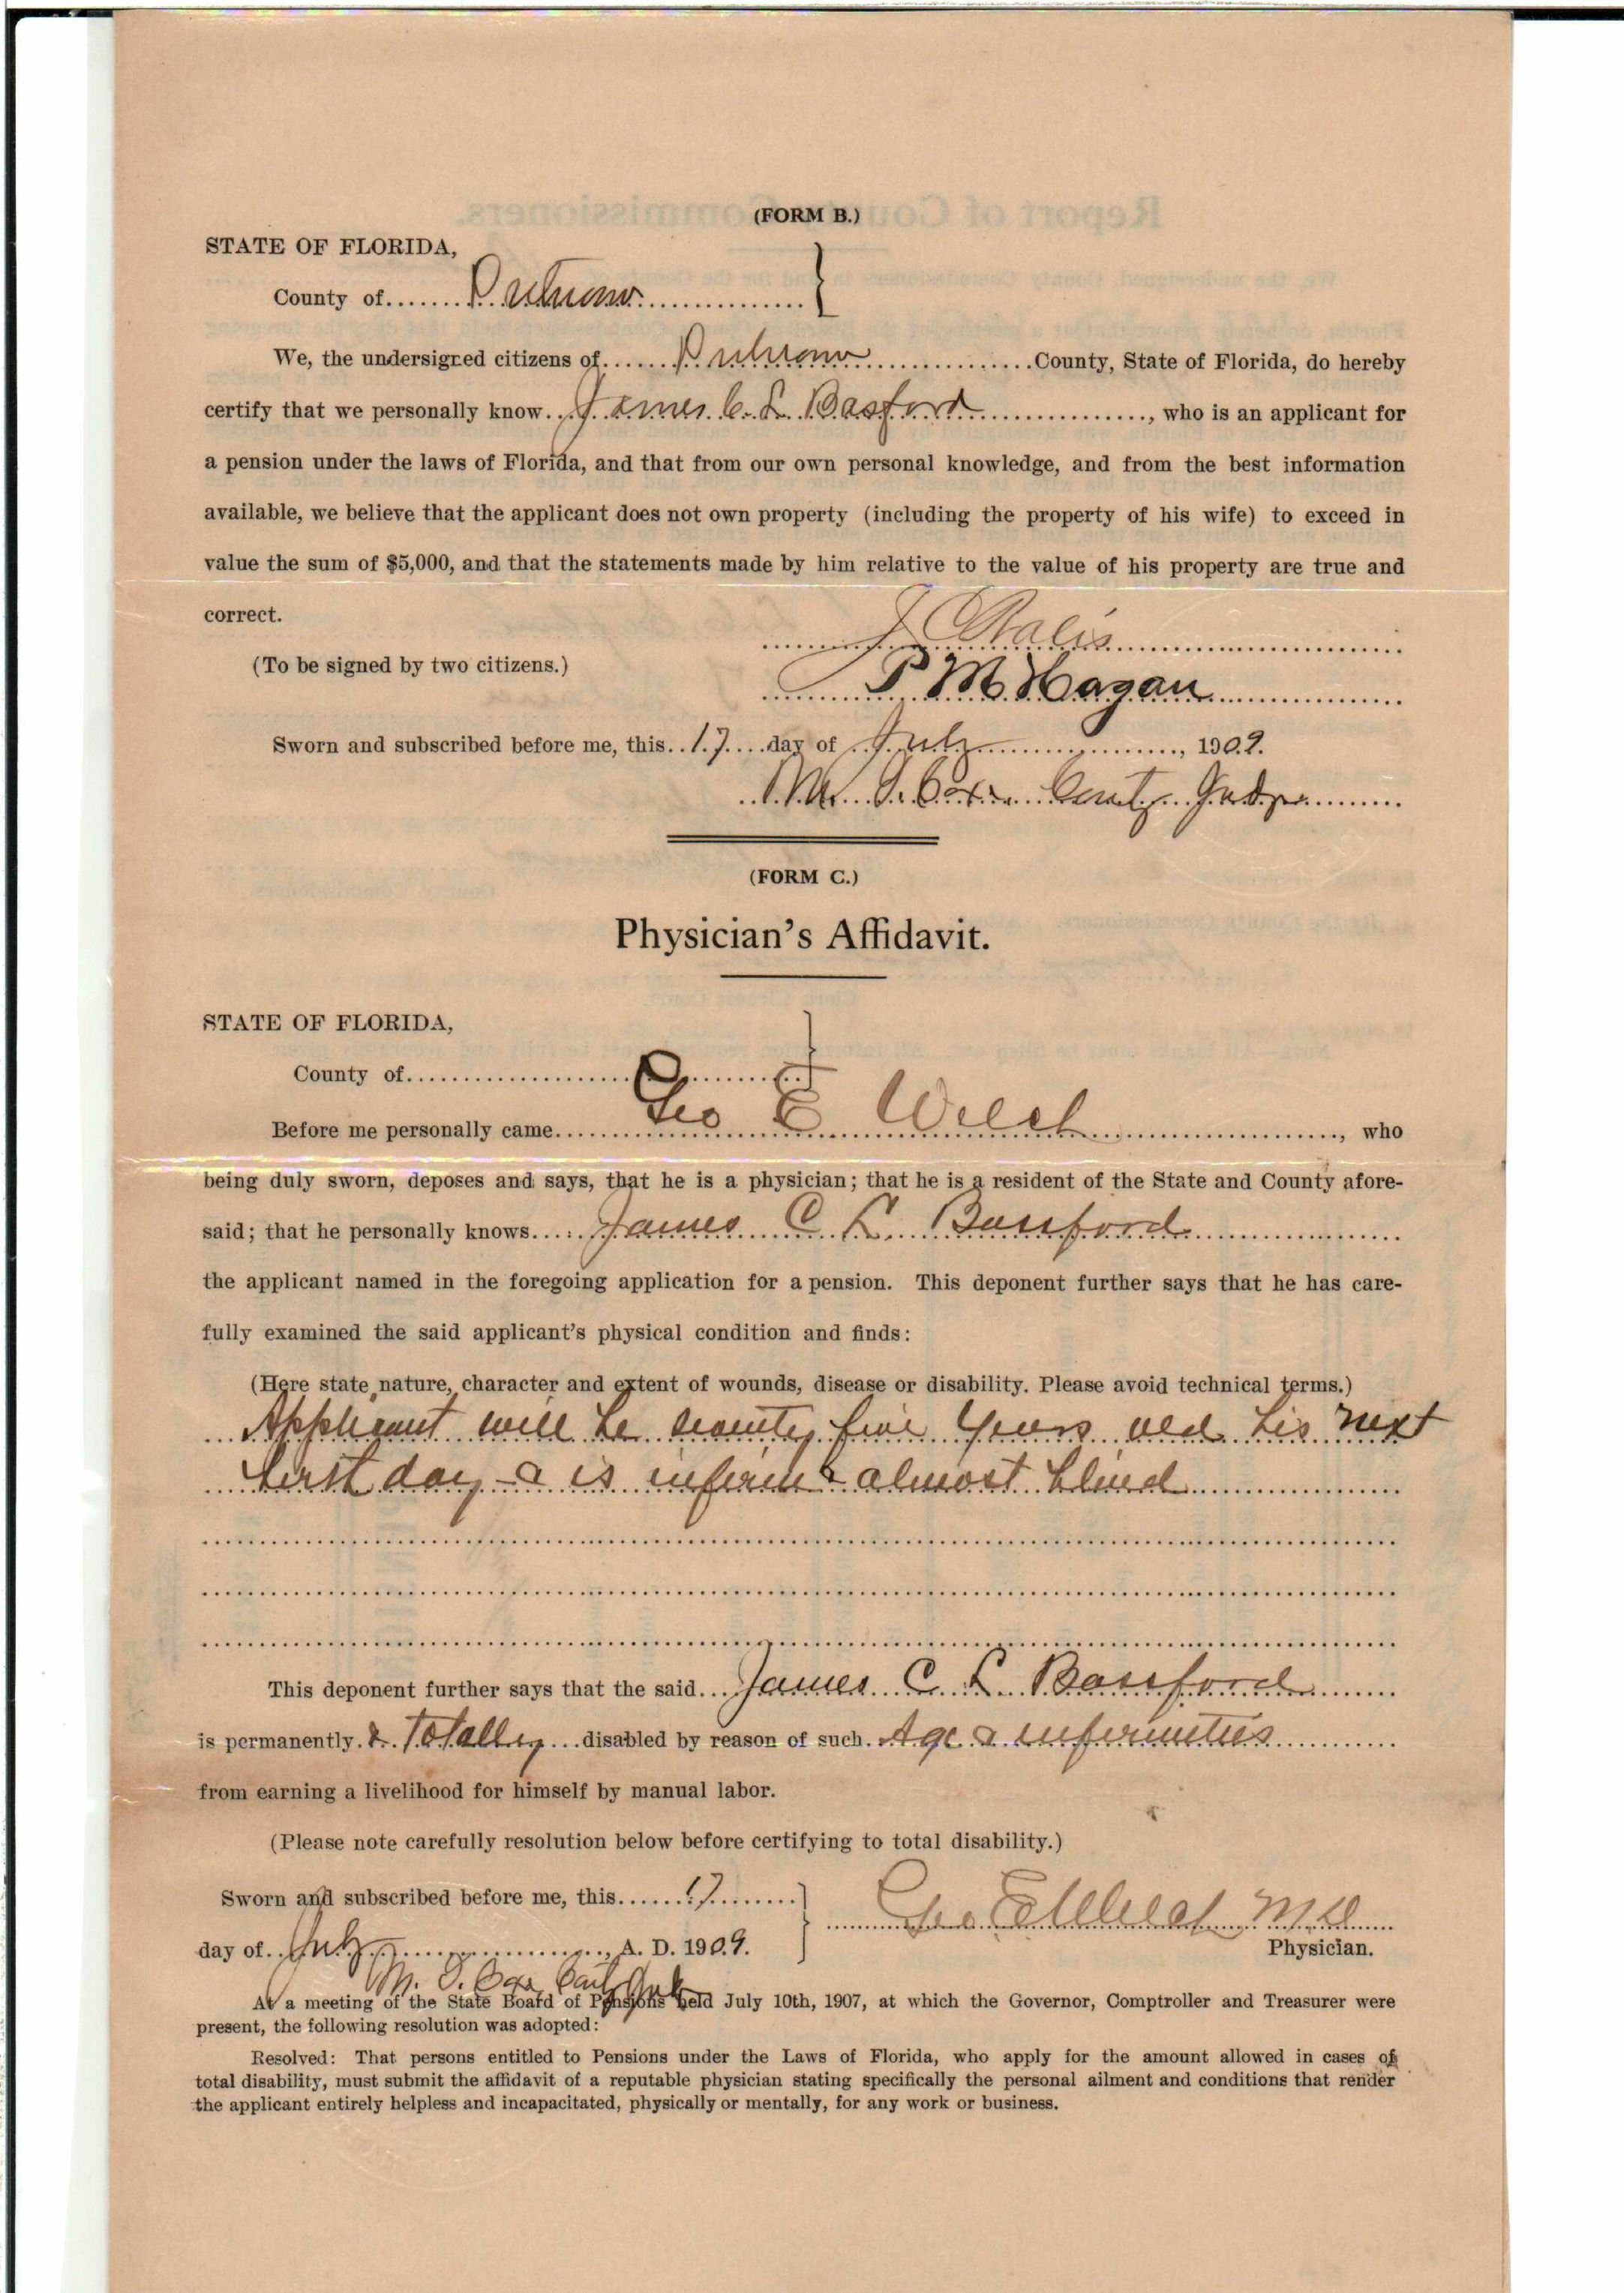 (FORM B.)
STATE OF FLORIDA,
County of Putnam
We, the undersigned citizens of Putnam County, State of Florida, do hereby
certify that we personally know James C. L. Basford, who is an applicant for
a pension under the laws of Florida, and that from our own personal knowledge, and from the best information
available, we believe that the applicant does not own property (including the property of his wife) to exceed in
value the sum of $5,000, and that the statements made by him relative to the value of his property are true and
correct.
(To be signed by two citizens.)
P M Hagan
Sworn and subscribed before me, this 17 day of July, 1909.
M. S. Cox County Judge
(FORM C.)
Physician's Affidavit.
STATE OF FLORIDA,
County of
Before me personally came Geo E Welch, who
being duly sworn, deposes and says, that he is a physician; that he is a resident of the State and County afore-
said; that he personally knows James C L Bassford
the applicant named in the foregoing application for a pension. This deponent further says that he has care-
fully examined the said applicant's physical condition and finds:
(Here state nature, character and extent of wounds, disease or disability. Please avoid technical terms.)
Applicant will be seventy five years old his next
birth day & is infirm & almost blind
This deponent further says that the said James C. L. Bassford
is permanently & totally disabled by reason of such Age & infirmities
from earning a livelihood for himself by manual labor.
(Please note carefully resolution below before certifying to total disability.)
Sworn and subscribed before me, this 17
Geo E Welch M D
day of July, A. D. 1909.
Physician.
M. S. Cox
At a meeting of the State Board of Pensions held July 10th, 1907, at which the Governor, Comptroller and Treasurer were
present, the following resolution was adopted:
Resolved: That persons entitled to Pensions under the Laws of Florida, who apply for the amount allowed in cases of
total disability, must submit the affidavit of a reputable physician stating specifically the personal ailment and conditions that render
the applicant entirely helpless and incapacitated, physically or mentally, for any work or business.